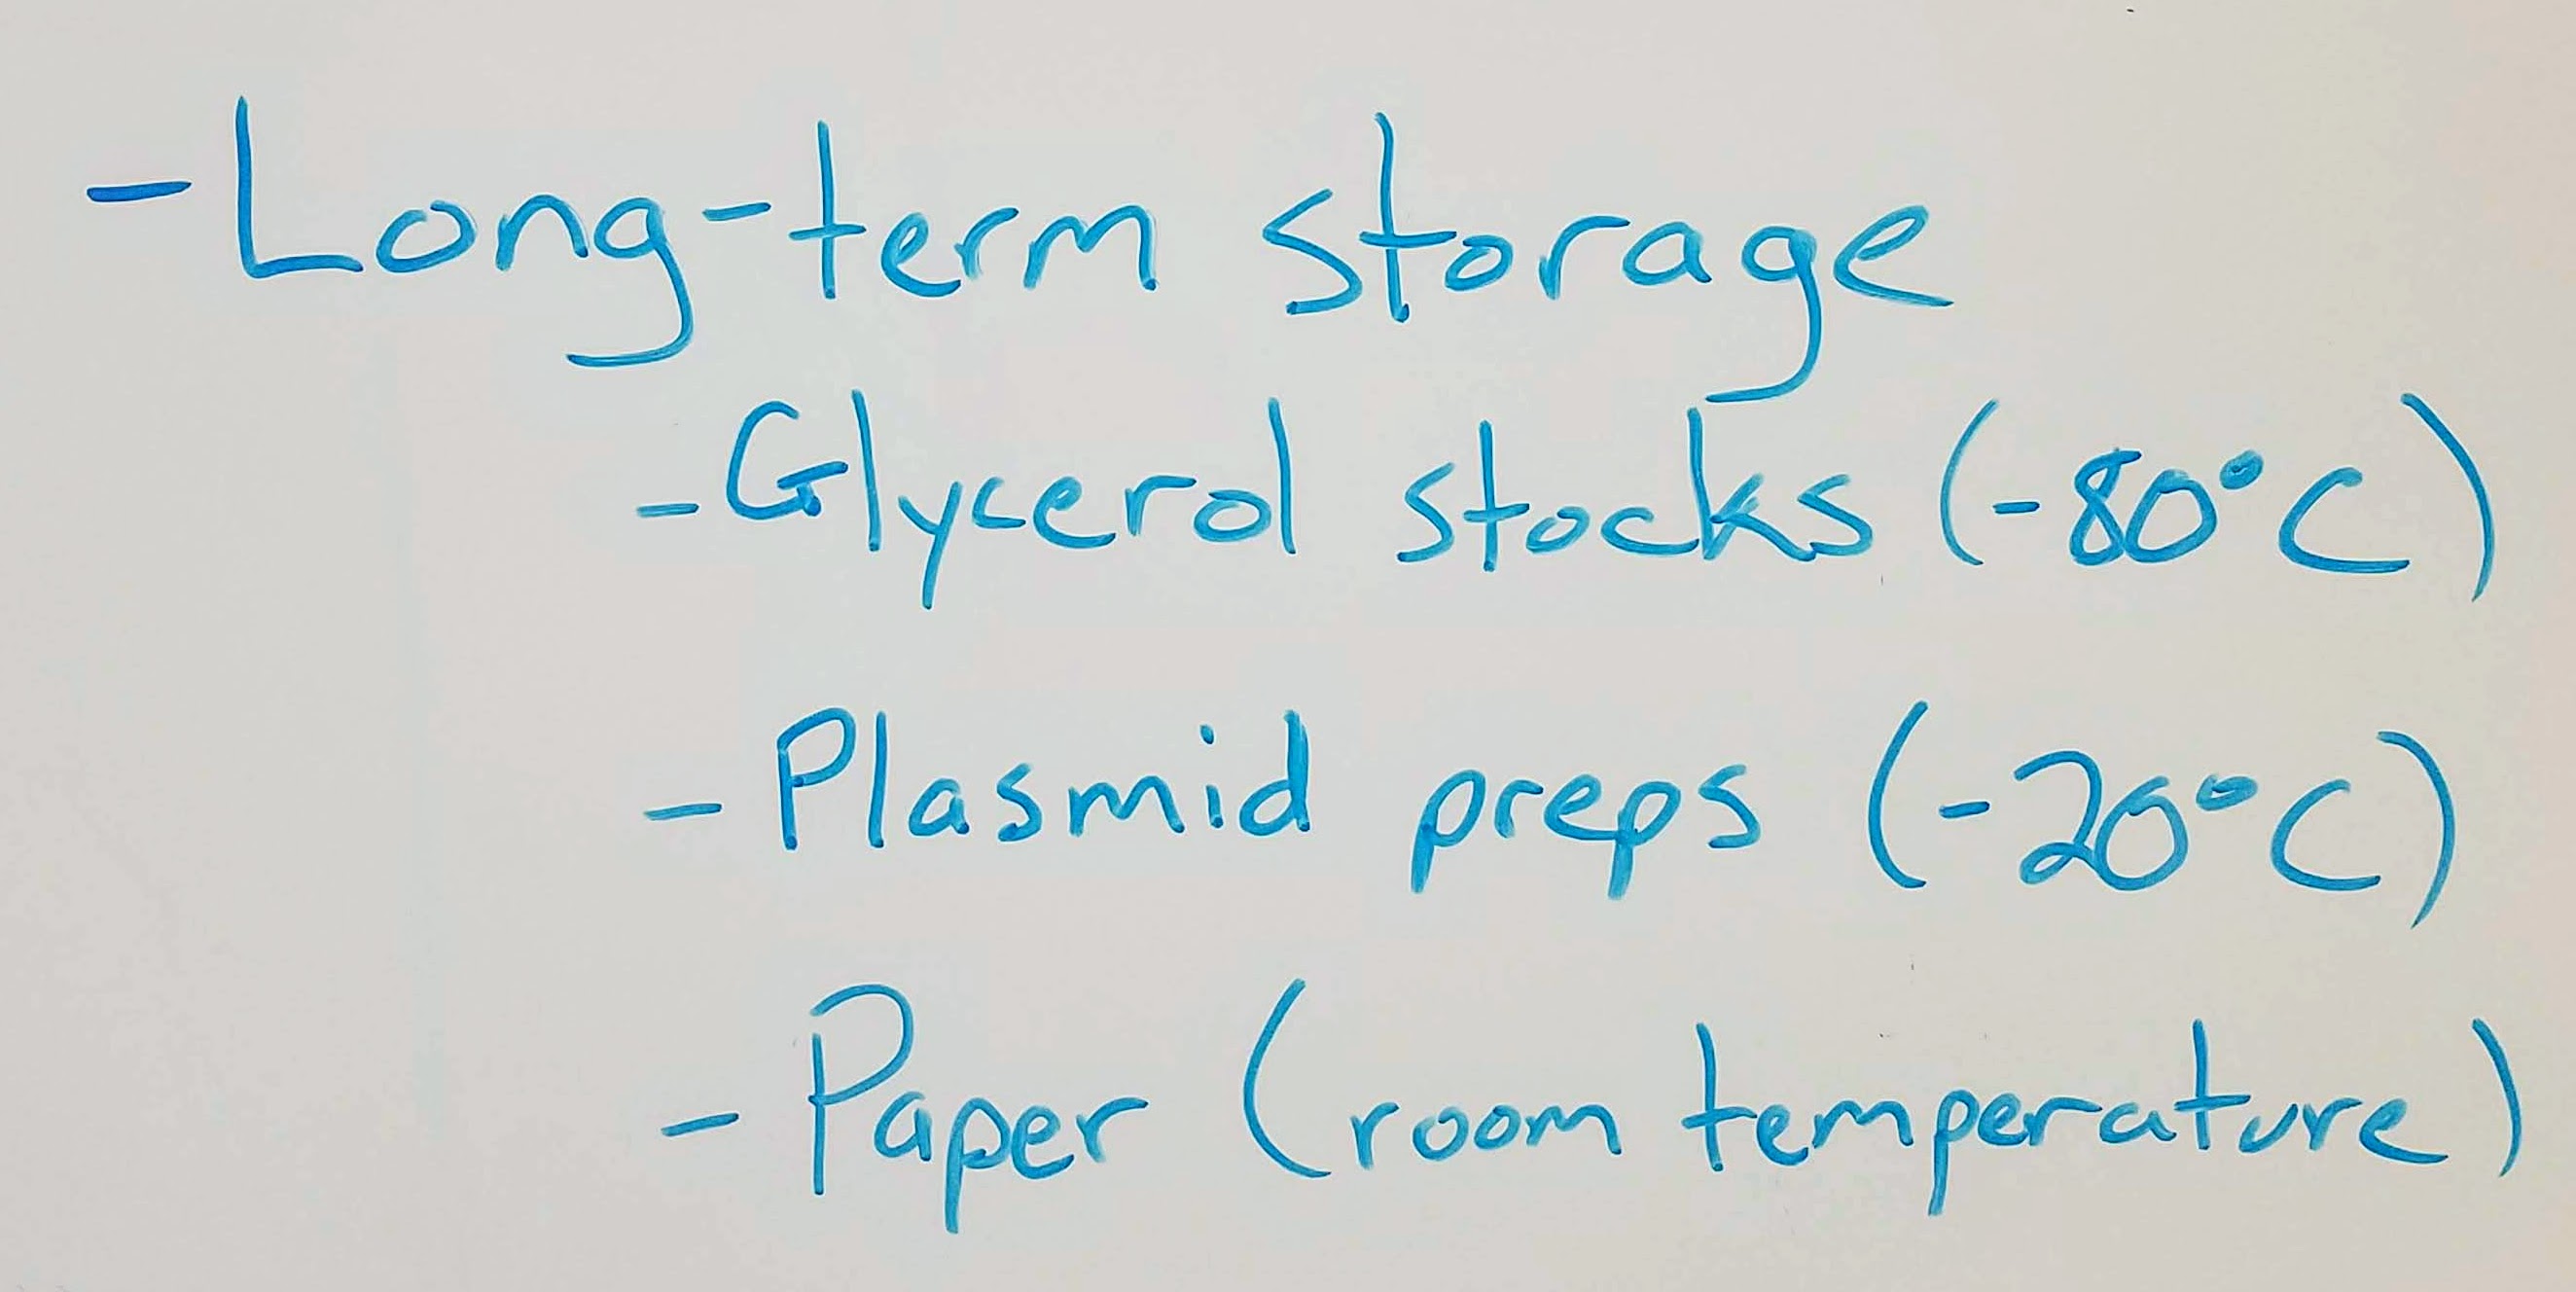 -Long-term storage
-Glycerol stocks (-80°C)
-Plasmid preps (-20°C)
-Paper (room temperature)